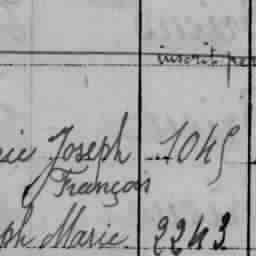 inscrit
Joseph 1045
François
Marie 2243